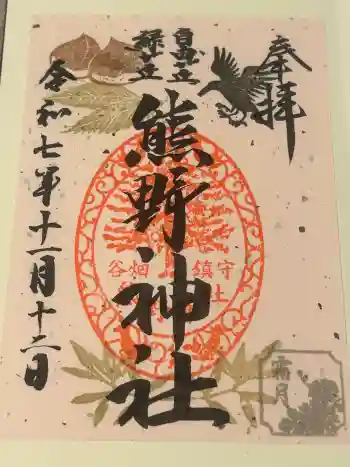 奉拝
自由丘
緑丘
熊野神社
令和七年十一月十二日
谷畑 鎮守
霜月